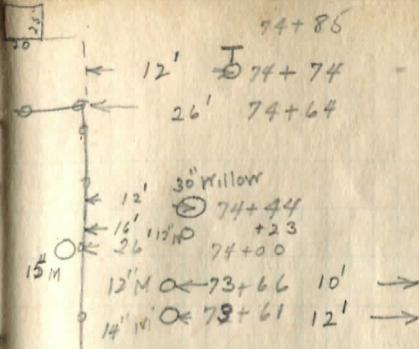 25'
20
74+85
12' 74+74
26' 74+64
30" Willow
12' 74+44
16' 12" M +23
26 74+00
15" M
12" M 73+66 10'
14" M 73+61 12'